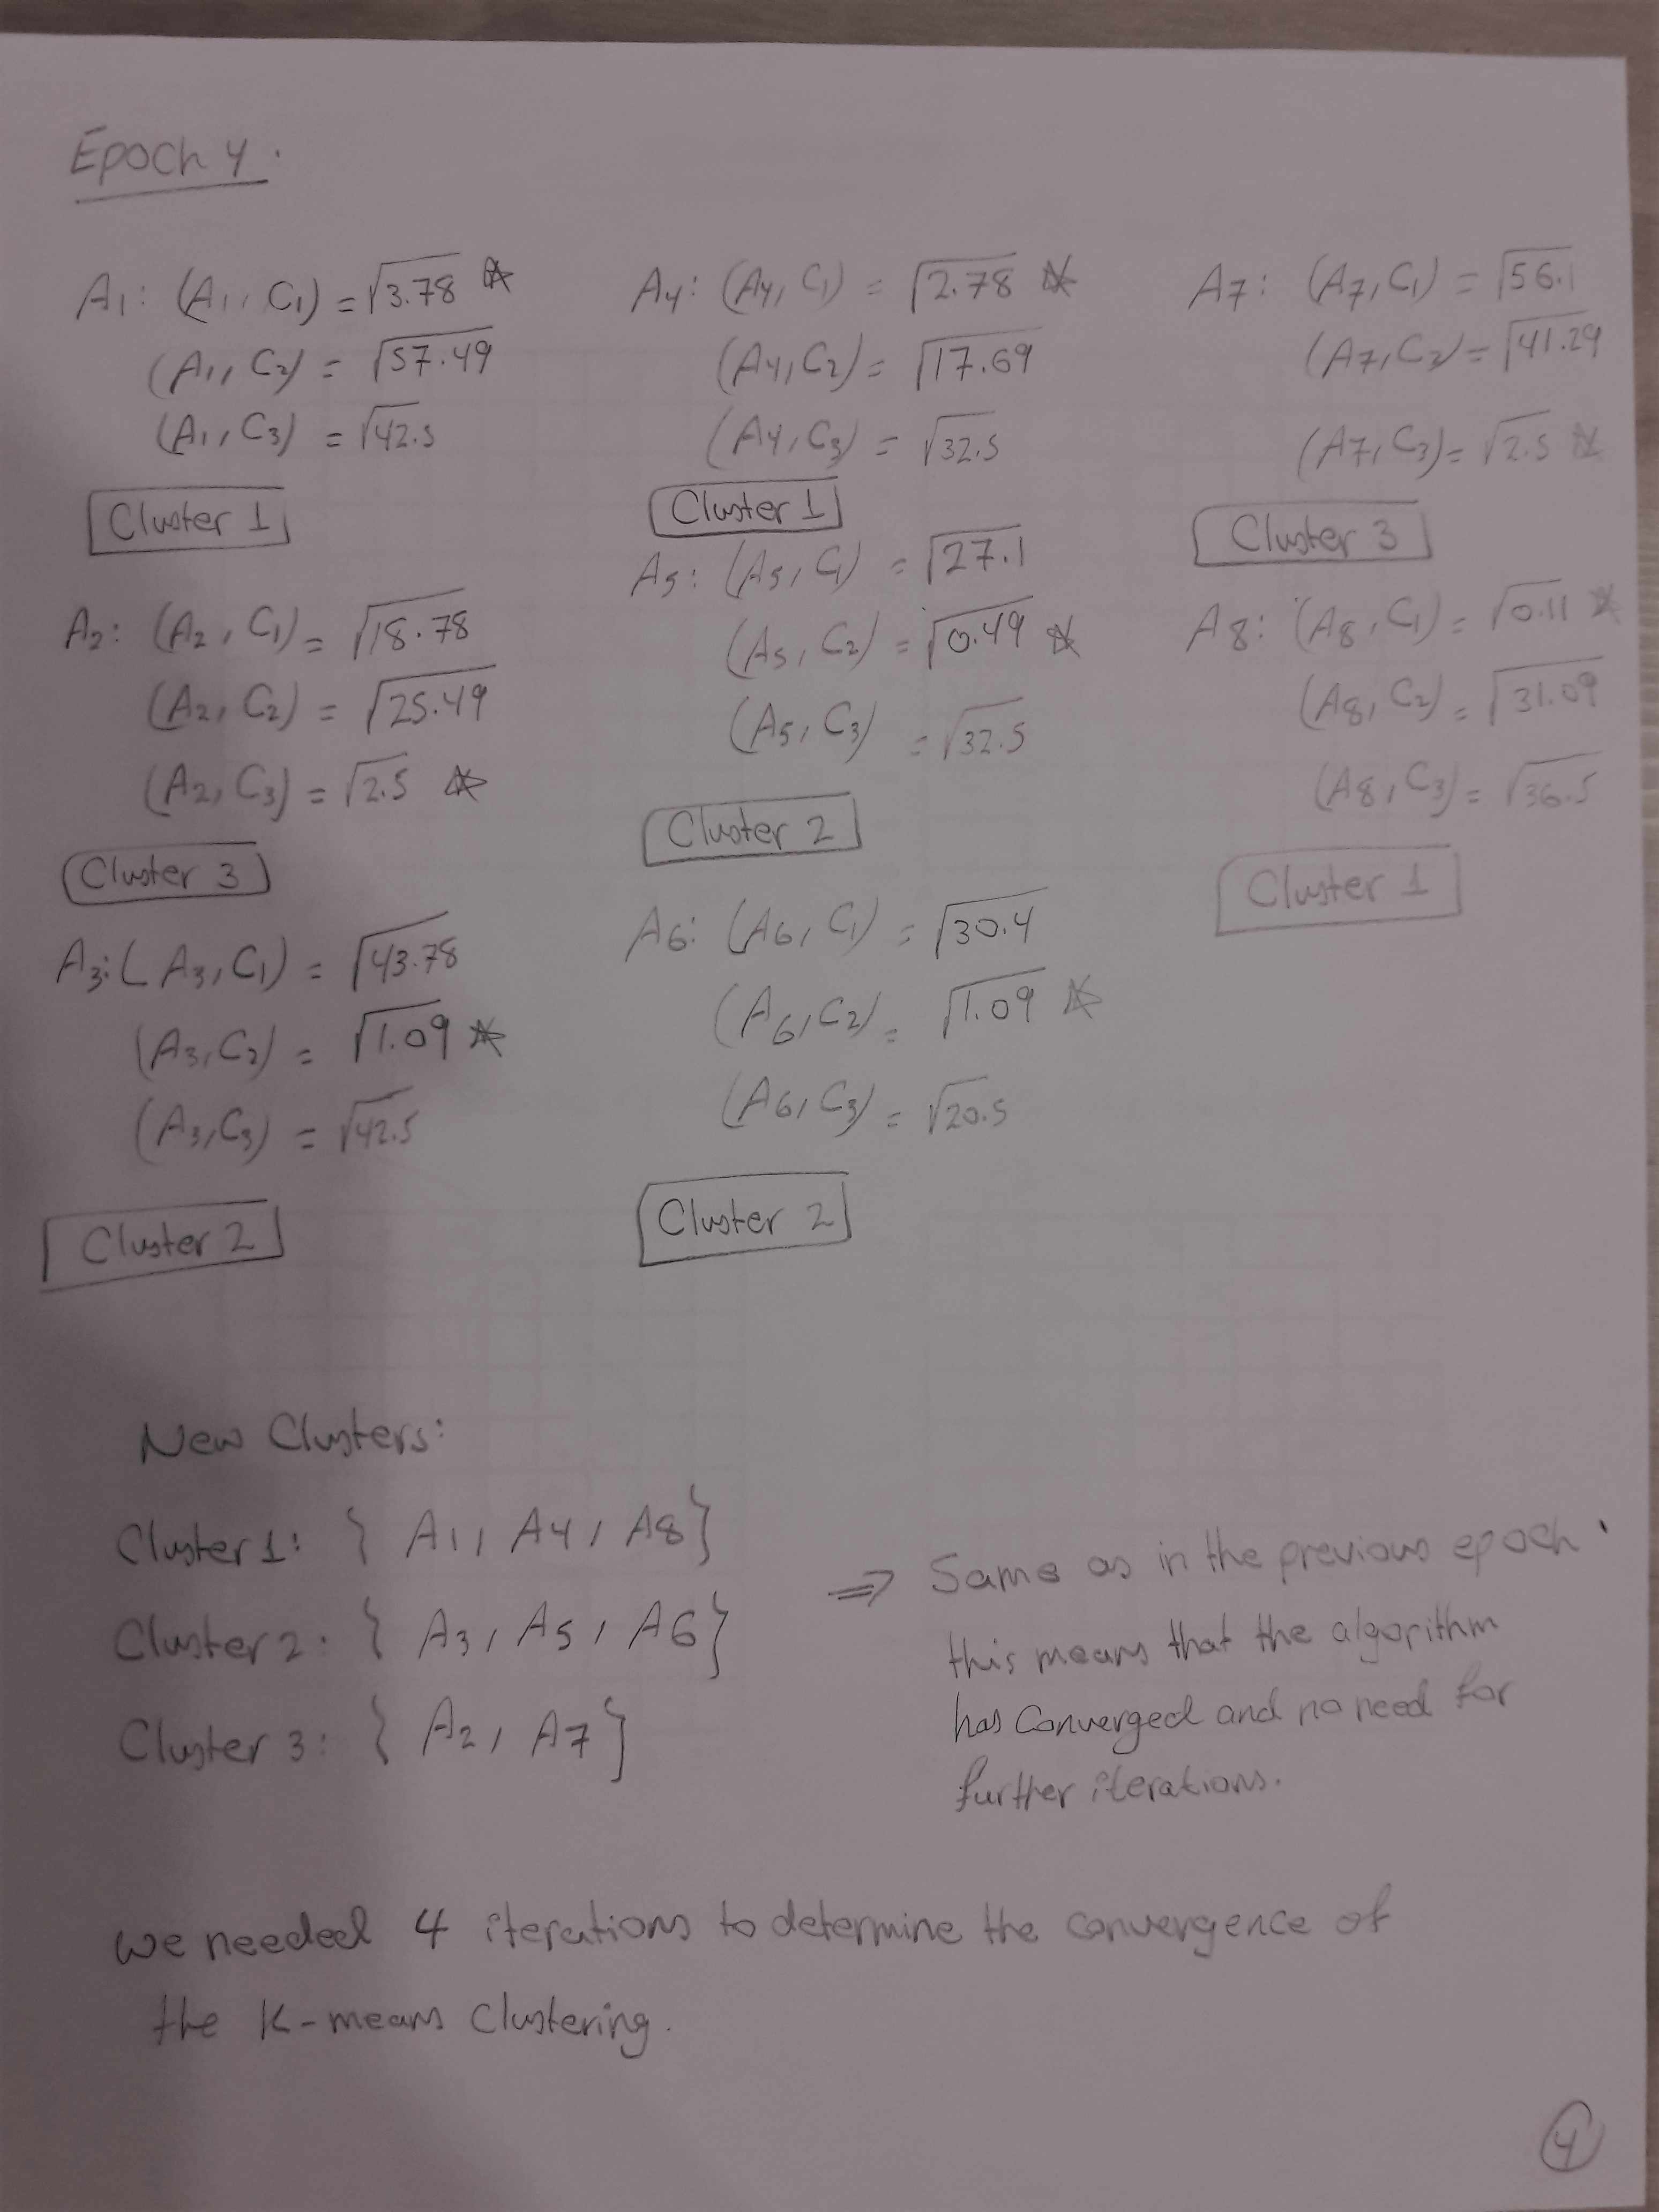 Epoch 4.
A1: (A1, C1) = √3.78 ☆
(A1, C2) = √57.49
(A1, C3) = √42.5
Cluster 1
A2: (A2, C1) = √18.78
(A2, C2) = √25.49
(A2, C3) = √2.5 ☆
Cluster 3
A3: (A3, C1) = √43.78
(A3, C2) = √1.09 ☆
(A3, C3) = √42.5
Cluster 2
A4: (A4, C1) = √2.78 ☆
(A4, C2) = √17.69
(A4, C3) = √32.5
Cluster 1
A5: (A5, C1) = √27.1
(A5, C2) = √0.49 ☆
(A5, C3) = √32.5
Cluster 2
A6: (A6, C1) = √30.4
(A6, C2) = √1.09 ☆
(A6, C3) = √20.5
Cluster 2
A7: (A7, C1) = √56.1
(A7, C2) = √41.29
(A7, C3) = √2.5 ☆
Cluster 3
A8: (A8, C1) = √0.11 ☆
(A8, C2) = √31.09
(A8, C3) = √36.5
Cluster 1
New Clusters:
Cluster 1: { A1, A4, A8}
Cluster 2: { A3, A5, A6}
Cluster 3: { A2, A7}
⇒ Same as in the previous epoch.
this means that the algorithm
has converged and no need for
further iterations.
we needed 4 iterations to determine the convergence of
the K-means clustering.
4